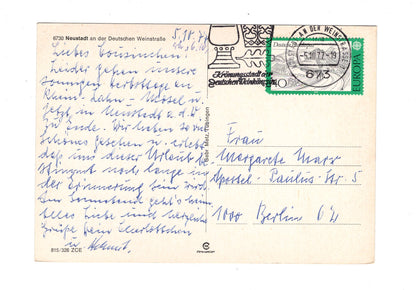 6730 Neustadt an der Deutschen Weinstraße
5.10.77
Liebes Cousinchen!
Leider gehen unsere
sonnigen Herbsttage an
Rhein-Lahn-Mosel u.
jetzt in Neustadt a.d.W.
zu Ende. Wir haben so viel
Schönes gesehen u. erlebt
daß uns dieser Urlaub be-
stimmt noch lange in
der Erinnerung sein wird.
Am Sonnabend geht's heim.
Alles Liebe und herzliche
Grüße Dein Charlottchen
u. Helmut.
815/326 ZCE
Gebr. Metz, Tübingen
Krönungsstadt der
Deutschen Weinkönigin
AN DER WEINSTRASSE
-5.10.77-19
673
Deutsche
EUROPA
Frau
Margarete Marx
Apostel-Paulus-Str. 5
1000 Berlin 62